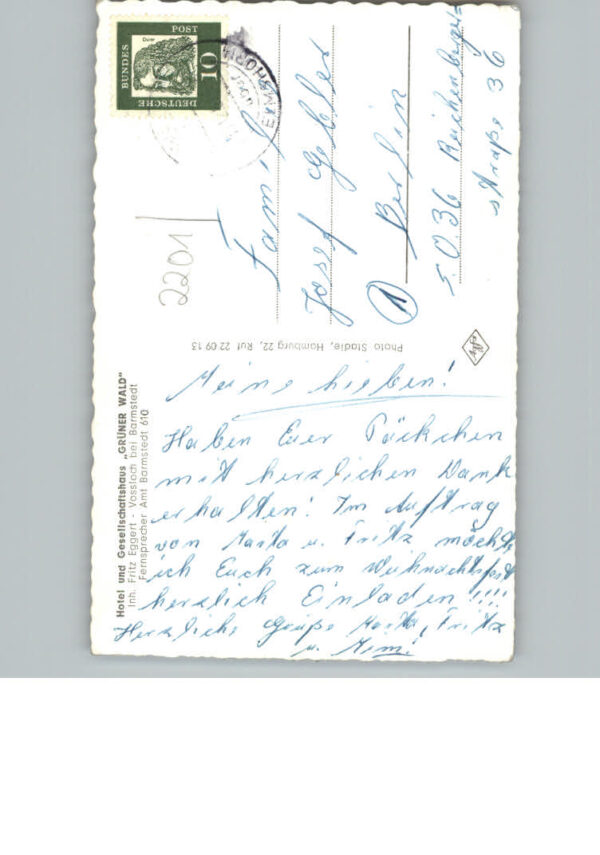 Hotel und Gesellschaftshaus „GRÜNER WALD"
Inh. Fritz Eggert - Vossloch bei Barmstedt
Fernsprecher Amt Barmstedt 610
Meine Lieben!
Haben Euer Päckchen
mit herzlichen Dank
erhalten! Im Auftrag
von Marta u. Fritz möchte
ich Euch zum Weihnachtsfest
herzlich Einladen!!!!
Herzliche Grüße Marta, Fritz
u.
Photo Stadie, Hamburg 22, Ruf 22 09 13
2201
DEUTSCHE
BUNDES
POST
10
Fam.
Josef
1 Berlin
S.O36 Reichenberger=
straße 36